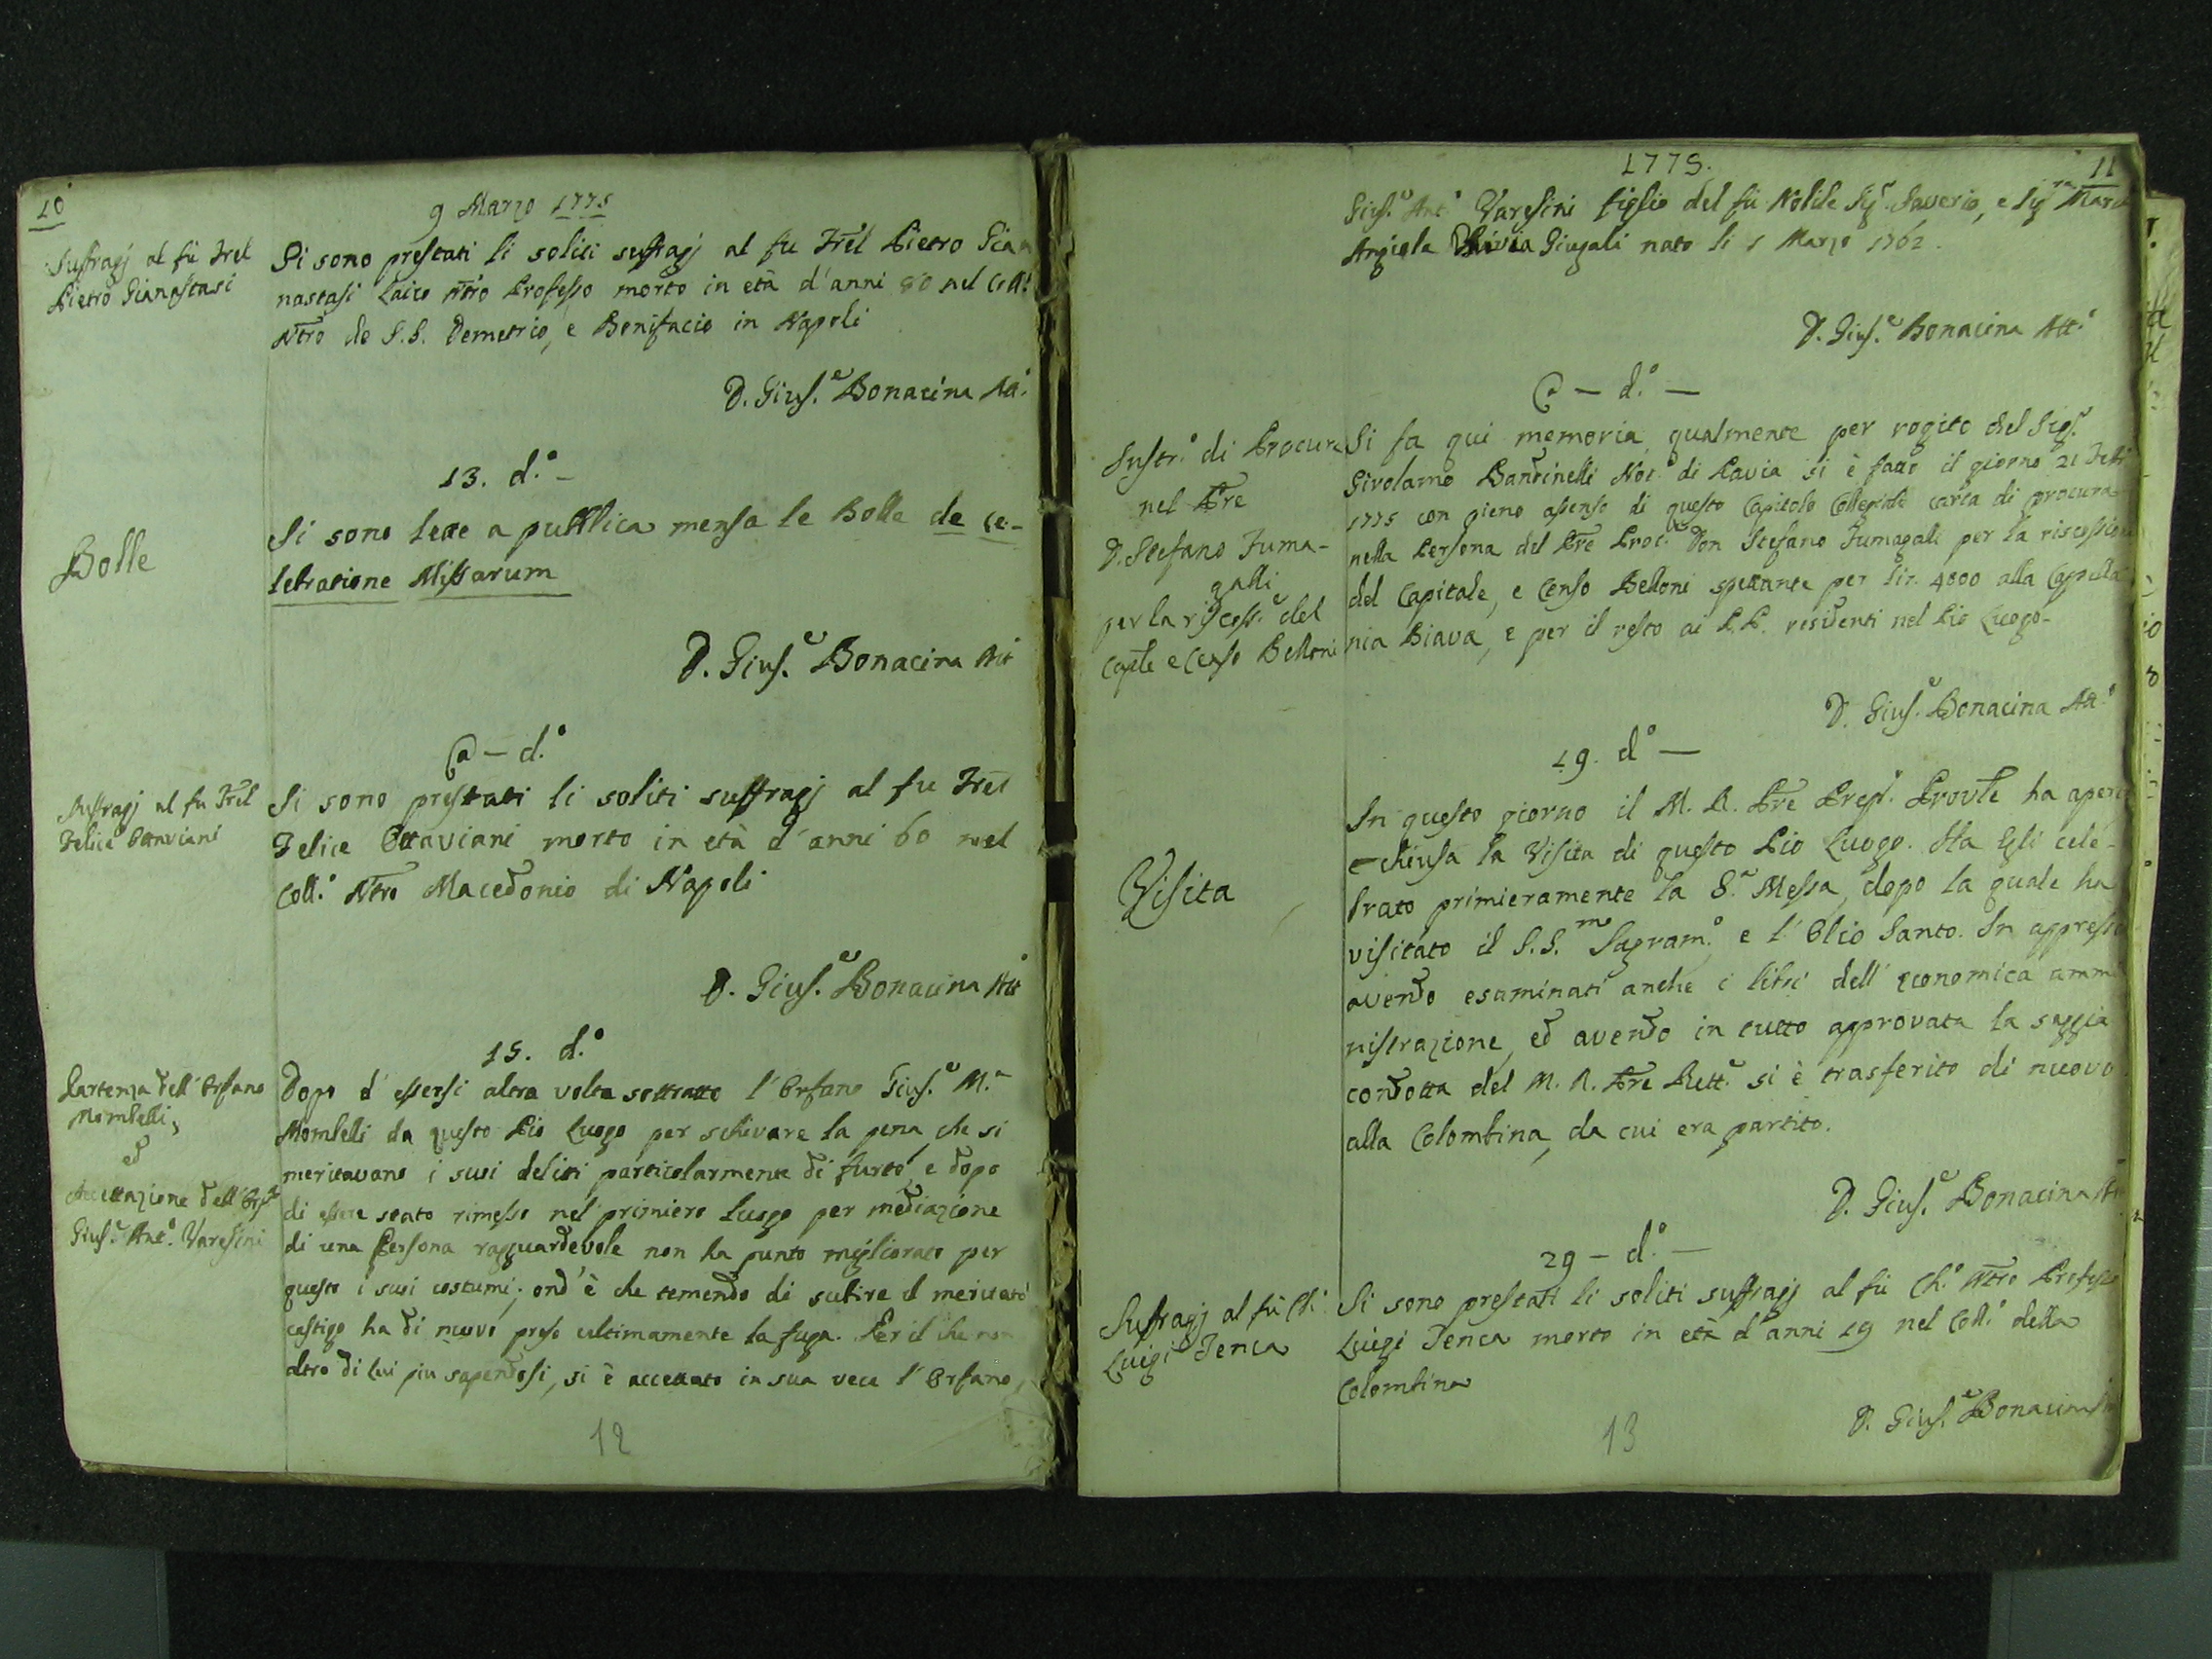 10
9 Marzo 1775
Suffragj al fù Frel
Pietro Gianastasi
Si sono prestati li soliti suffragj al fu Frel Pietro Gian
nastasi Laico Ntro Professo morto in età d'anni 80 nel Coll.o
Ntro de S.S. Demetrio, e Bonifacio in Napoli
D. Gius.e Bonacina Att.o
13. d.o -
Bolle
Si sono lette a pubblica mensa le Bolle de ce-
lebratione Missarum
D. Gius.e Bonacina Att
A - d.o
Suffragj al fu Frel
Felice Ottaviani
Si sono prestati li soliti suffragj al fu Frel
Felice Ottaviani morto in età d'anni 60 nel
Coll.o Ntro Macedonio di Napoli
D. Gius.e Bonacina Att.o
15. d.o
Partenza dell'Orfano
Mombelli,
ed
Accettazione dell'Orfo
Gius.e Ant.o Varesini
Dopo d'essersi altra volta sottratto l'Orfano Gius.e M.a
Mombelli da questo Pio Luogo per schivare la pena, che si
meritavano i suoi delitti particolarmente di furto, e dopo
di essere stato rimesso nel primiero Luogo per mediazione
di una Persona ragguardevole non ha punto migliorato per
questo i suoi costumi; ond'è che temendo di subire il meritato
castigo ha di nuovo preso ultimamente la fuga. Per il che non
altro di lui più sapendosi, si è accettato in sua vece l'Orfano,
12
1775.
11
Gius.e Ant.o Varesini figlio del fù Nobile Sig.r Saverio, e Sig.ra Maria
Angiola Giugali nato li 1 Marzo 1762.
D. Gius.e Bonacina Att.o
A - d.o -
Instr.o di Procura
nel Pre
D. Stefano Fuma-
galli
per la riscoss.e del
Caple e Censo Belloni
Si fa qui memoria qualmente per rogito del Sig.r
Girolamo Bandinelli Not.o di Pavia si è fatto il giorno 21 Febb
1775 con pieno assenso di questo Capitolo Collegiale carta di procura
nella Persona del Pre Proc. Don Stefano Fumagalli per la riscossione
del Capitale, e Censo Belloni spettante per lir. 4000 alla Cappella
nia Biava, e per il resto ai P.P. residenti nel Pio Luogo-
D. Gius.e Bonacina Att.o
19. d.o -
Visita
In questo giorno il M. R. Pre Prep.o Provle ha aperta
e chiusa la Visita di questo Pio Luogo. Ha Egli cele-
brato primieramente la S.a Messa, dopo la quale ha
visitato il S.S.mo Sagram.o e l'Olio Santo. In appresso
avendo esaminati anche i libri dell'economica ammi
nistrazione, ed avendo in tutto approvata la saggia
condotta del M. R. Pre Rett.e si è trasferito di nuovo
alla Colombina, da cui era partito.
D. Gius.e Bonacina Att
29 - d.o -
Suffragj al fù Ch.o
Luigi Tenca
Si sono prestati li soliti suffragj al fù Ch.o Ntro Professo
Luigi Tenca morto in età d'anni 19 nel Coll.o della
Colombina
D. Gius.e Bonacina
13